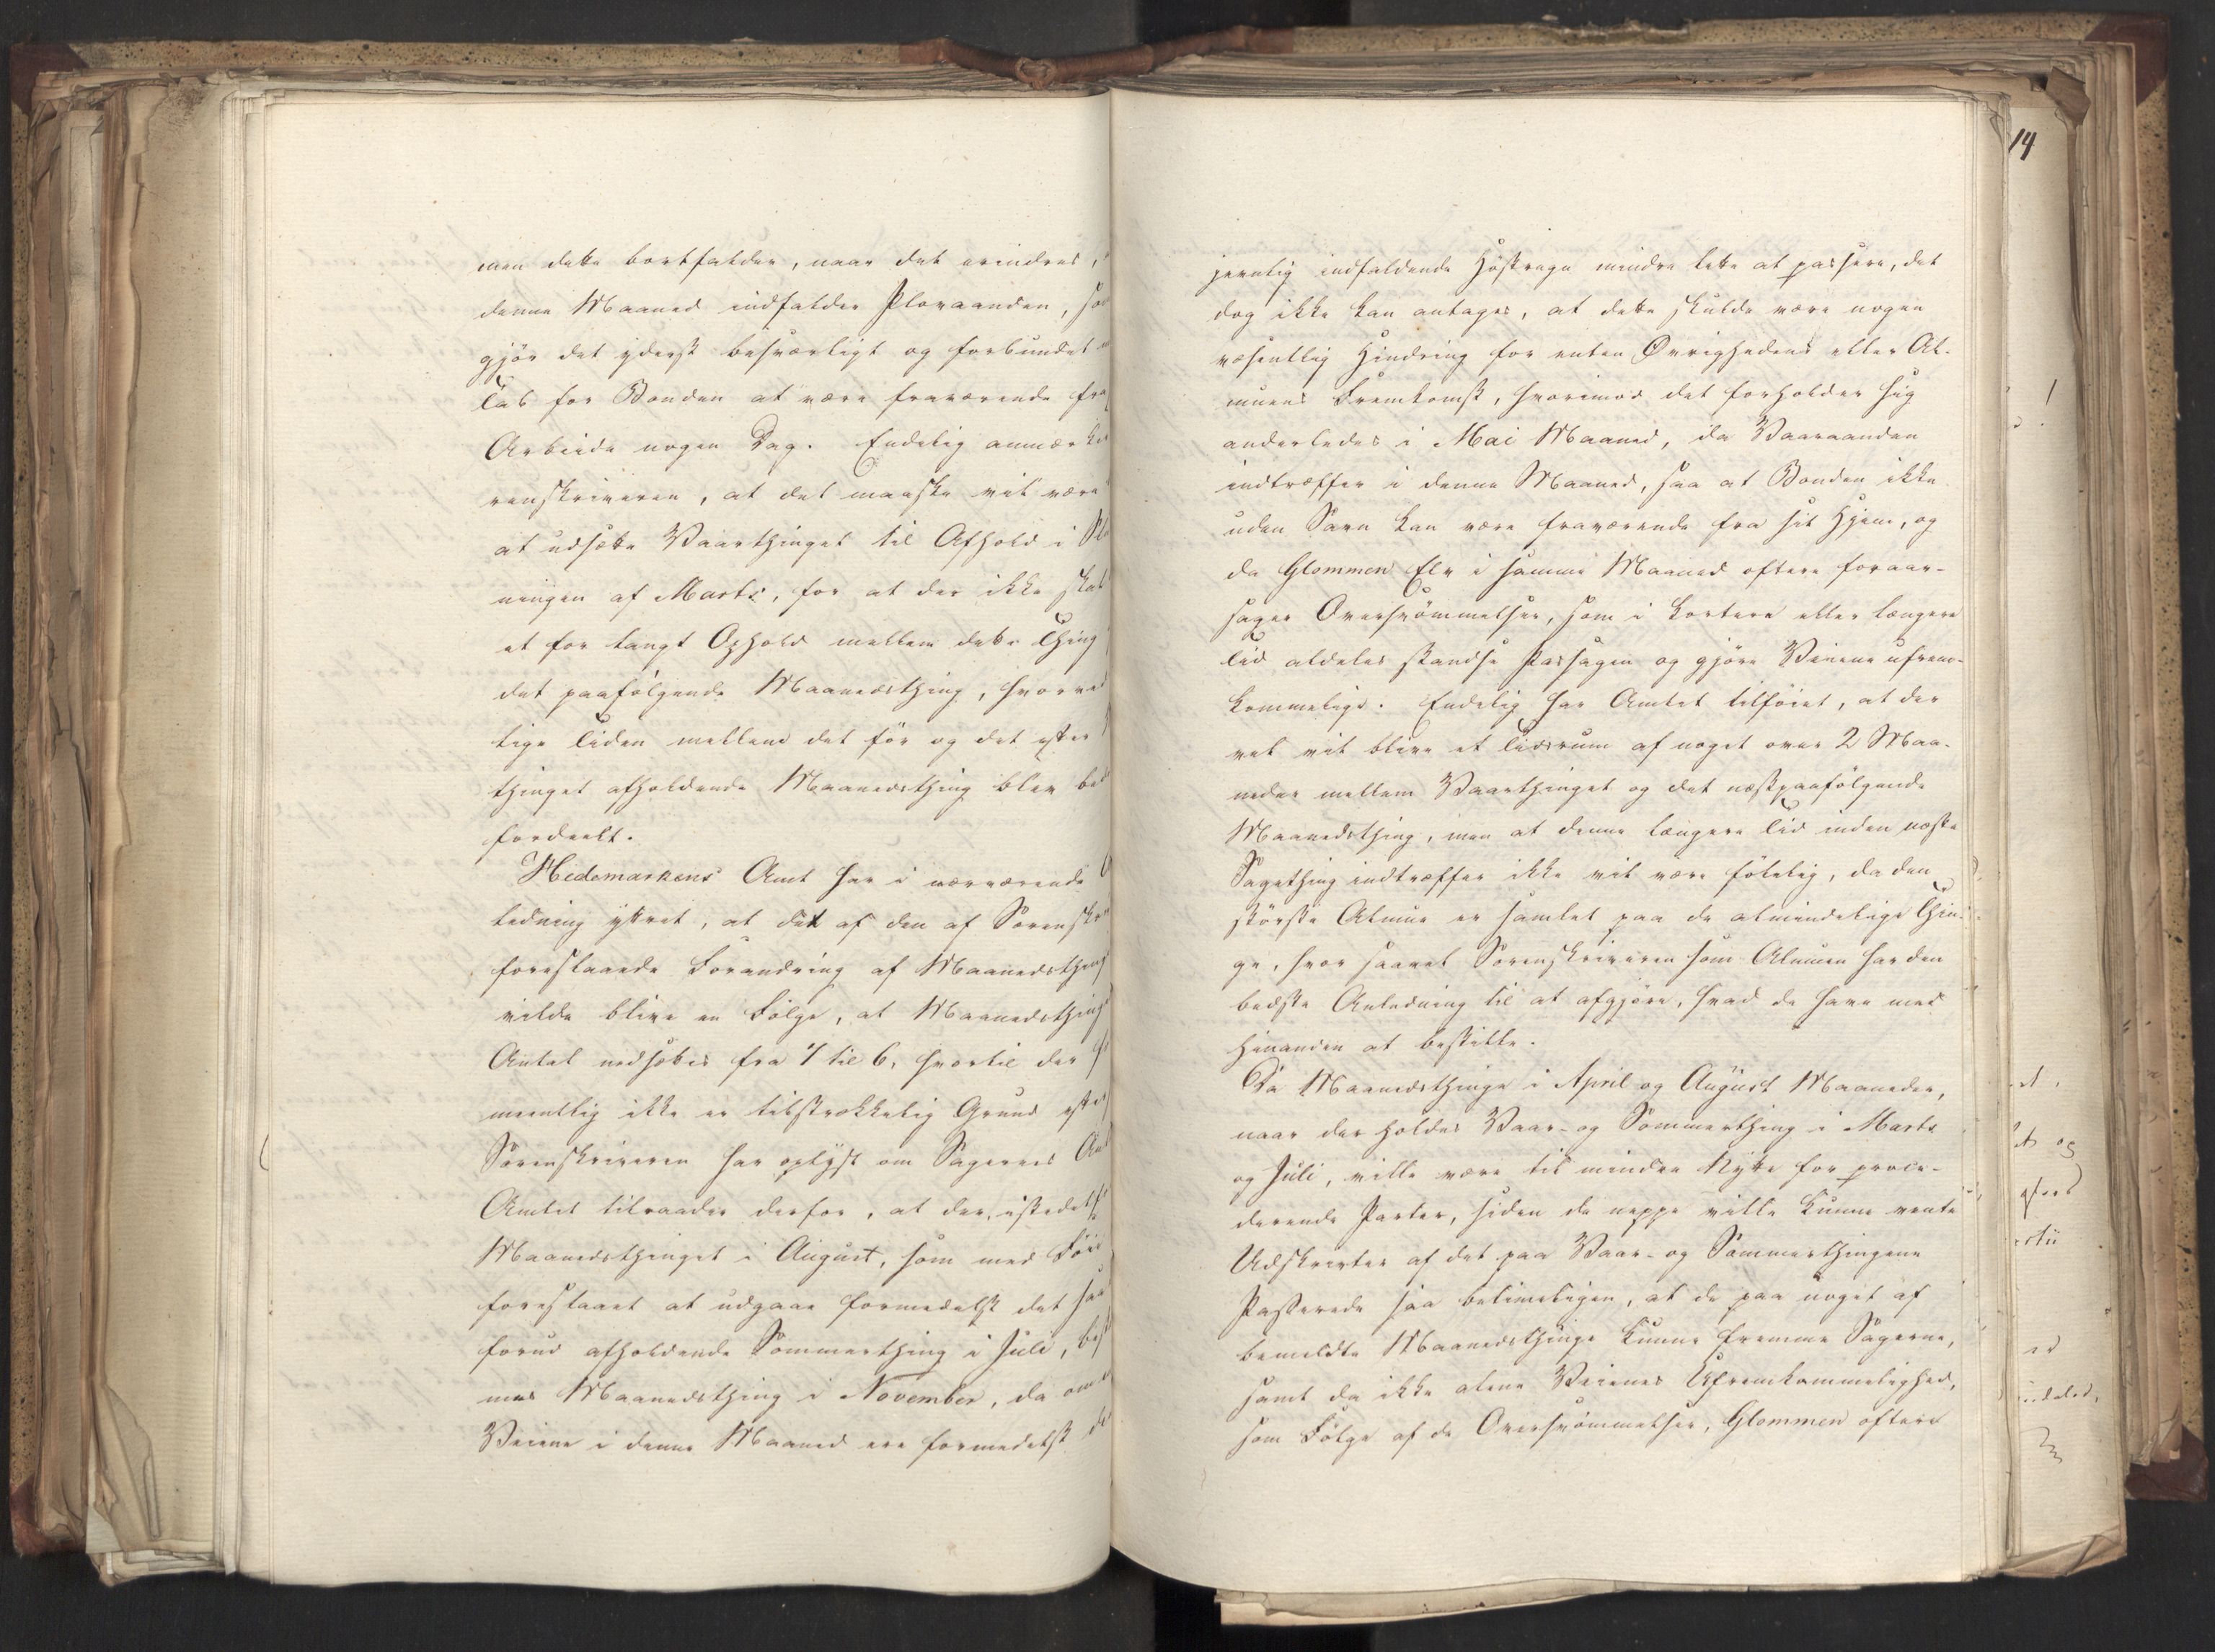 men dette bortfalder, naar det erindres,
denne Maaned indfalder Plovaanden, som
gjör det yderst besværligt og forbundet
Tab for Bonden at være fraværende fra
Arbeide nogen Dag. Endelig anmærker
renskriveren, at det maaske vil være
at udsætte Vaarthinget til Afhold i
ningen af Marts, for at der ikke skal
et for langt Ophold mellem dette Thing
det paafölgende Maanedsthing, hvorved
lige Tiden mellem det för og det efter
thinget afholdende Maanedsthing blev
fordeelt.
Hedemarkens Amt har i nærværende
ledning yttret, at det af den af Sorenskri
foreslaaede Forandring af Maanedsthing
vilde blive en Fölge, at Maanedsthing
Antal nedsættes fra 7 til 6, hvortil der
meentlig ikke er tilstrækkelig Grund efter
Sorenskriveren har oplyst om Sagernes Ant
Amtet tilraader derfor, at der, istedetfor
Maanedsthinget i August, som med Föie
foreslaaet at udgaae formedelst det saa
forud afholdende Sommerthing i Juli, best
mes Maanedsthing i November, da om end
Veiene i denne Maaned ere formedelst
14
jevnlig indfaldende Höstregn mindre lette at passere, det
dog ikke kan antages, at dette skulde være nogen
væsentlig Hindring for enten Øvrighedens eller Al-
muens Fremkomst, hvorimod det forholder sig
anderledes i Mai Maaned, da Vaaraanden
indtræffer i denne Maaned, saa at Bonden ikke
uden Savn kan være fraværende fra sit Hjem, og
da Glommen Elv i samme Maaned oftere foraar-
sager Oversvömmelser, som i kortere eller længere
Tid aldeles standse Passagen og gjöre Veiene ufrem-
kommelige. Endelig har Amtet tilföiet, at der
vel vil blive et Tidsrum af noget over 2 Maa-
neder mellem Vaarthinget og det næstpaafölgende
Maanedsthing, men at denne længere Tid inden næste
Sagething indtræffer ikke vil være fölelig, da den
störste Almue er samlet paa de almindelige Thin-
ge, hvor saavel Sorenskriveren som Almuen har den
bedste Anledning til at afgjöre, hvad de have med
hinanden at bestille.
Da Maanedsthinge i April og August Maaneder,
naar der holdes Vaar- og Sommerthing i Marts
og Juli, ville være til mindre Nytte for proce-
derende Parter, siden de neppe ville kunne vente
Udskrivter af det paa Vaar- og Sommerthingene
Passerede saa betimeligen, at de paa noget af
bemeldte Maanedsthinge kunne fremme Sagerne,
samt da ikke alene Veienes Ufremkommelighed,
som Fölge af de Oversvömmelser, Glommen oftere